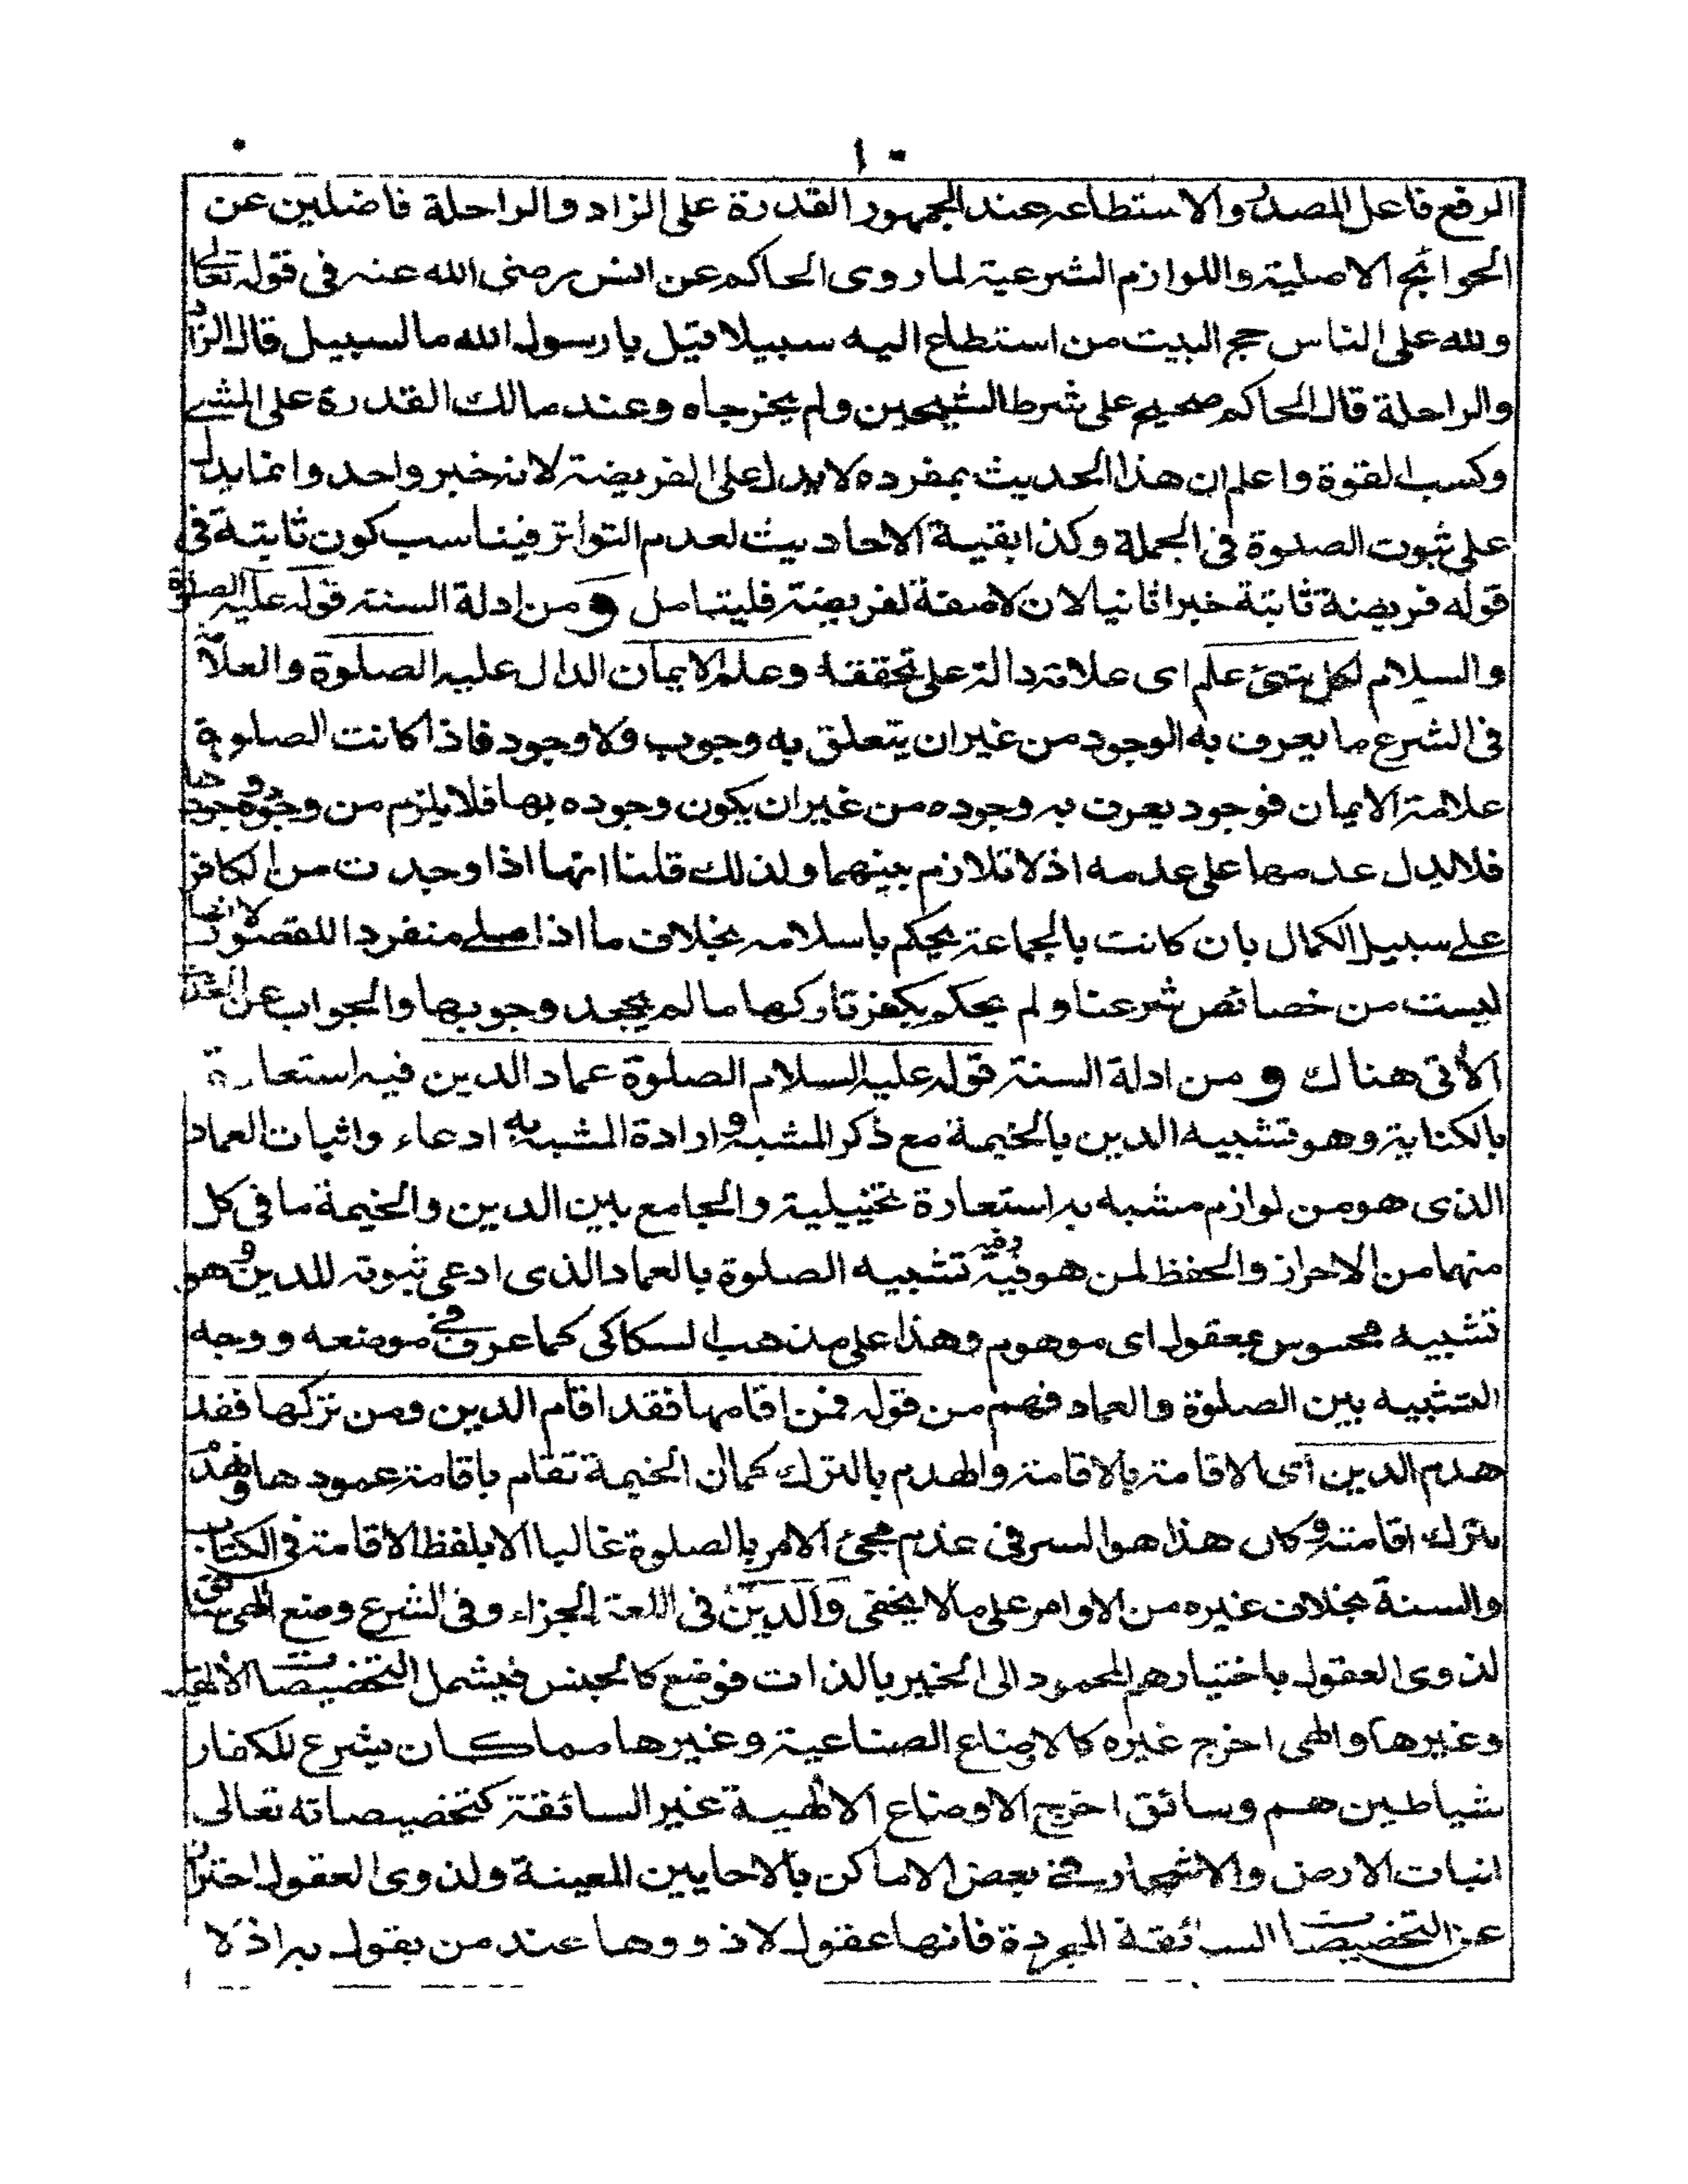 ١٠
الرفع فاعل المصدر والاستطاعة عند الجمهور القدرة على الزاد والراحلة فاضلين عن
الحوائج الاصلية واللوازم الشرعية لما روى الحاكم عن انس رضى الله عنه فى قوله تعالى
ولله على الناس حج البيت من استطاع اليه سبيلا قيل يا رسول الله ما السبيل قال الزاد
والراحلة قال الحاكم صحيح على شرط الشيخين ولم يخرجاه وعند مالك القدرة على المشى
وكسب القوة واعلم ان هذا الحديث بمفرده لا يدل على الفريضة لانه خبر واحد وانما يدل
على ثبوت الصلوة فى الجملة وكذا بقية الاحاديث لعدم التواتر فيناسب كون ثابتة فى
قوله فريضة ثابتة خبرا ثانيا لان لا صفة لفريضة فليتامل و من ادلة السنة قوله عليه الصلوة
والسلام لكل شئ علم اى علامة دالة على تحققه وعلم الايمان الدال عليه الصلوة والعلامة
فى الشرع ما يعرف به الوجود من غير ان يتعلق به وجوب ولا وجود فاذا كانت الصلوة
علامة الايمان فوجود يعرف به وجوده من غير ان يكون وجوده بها فلا يلزم من وجودها وجوده
فلا يدل عدمها على عدمه اذ لا تلازم بينهما ولذلك قلنا انها اذا وجدت من الكافر
على سبيل الكمال بان كانت بالجماعة يحكم باسلامه بخلاف ما اذا صلى منفردا للقصور لانها
ليست من خصائص شرعنا ولم يحكم بكفر تاركها ما لم يجحد وجوبها والجواب عن
الآتى هناك و من ادلة السنة قوله عليه السلام الصلوة عماد الدين فيه استعارة
بالكناية وهو تشبيه الدين بالخيمة مع ذكر المشبه وارادة المشبه به ادعاء واثبات العماد
الذى هو من لوازم مشبه به استعارة تخييلية والجامع بين الدين والخيمة ما فى كل
منهما من الاحراز والحفظ لمن هو فيه وفيه تشبيه الصلوة بالعماد الذى ادعى ثبوته للدين وهو
تشبيه محسوس بمعقول اى موهوم وهذا على مذهب السكاكى كما عرف فى موضعه ووجه
التشبيه بين الصلوة والعماد فهم من قوله فمن اقامها فقد اقام الدين ومن تركها فقد
هدم الدين اى الاقامة بالاقامة والهدم بالترك كما ان الخيمة تقام باقامة عمودها وتهدم
بترك اقامته وكان هذا هو السر فى عدم مجئ الامر بالصلوة غالبا الا بلفظ الاقامة فى الكتاب
والسنة بخلاف غيره من الاوامر على ما لا يخفى والدين فى اللغة الجزاء وفى الشرع وضع الهى سائق
لذوى العقول باختيارهم المحمود الى الخير بالذات فوضع كالجنس فيشمل التخصيصات الالهية
وغيرها والهى اخرج غيره كالاوضاع الصناعية وغيرها مما كان يشرع للكفار
شياطينهم وسائق اخرج الاوضاع الالهية غير السائقة كتخصيصاته تعالى
انبات الارض والاشجار فى بعض الاماكن بالاحايين المعينة ولذوى العقول احتراز
عن التخصيصات السائقة المجردة فانها عقول لا ذووها عند من يقول به اذ لا